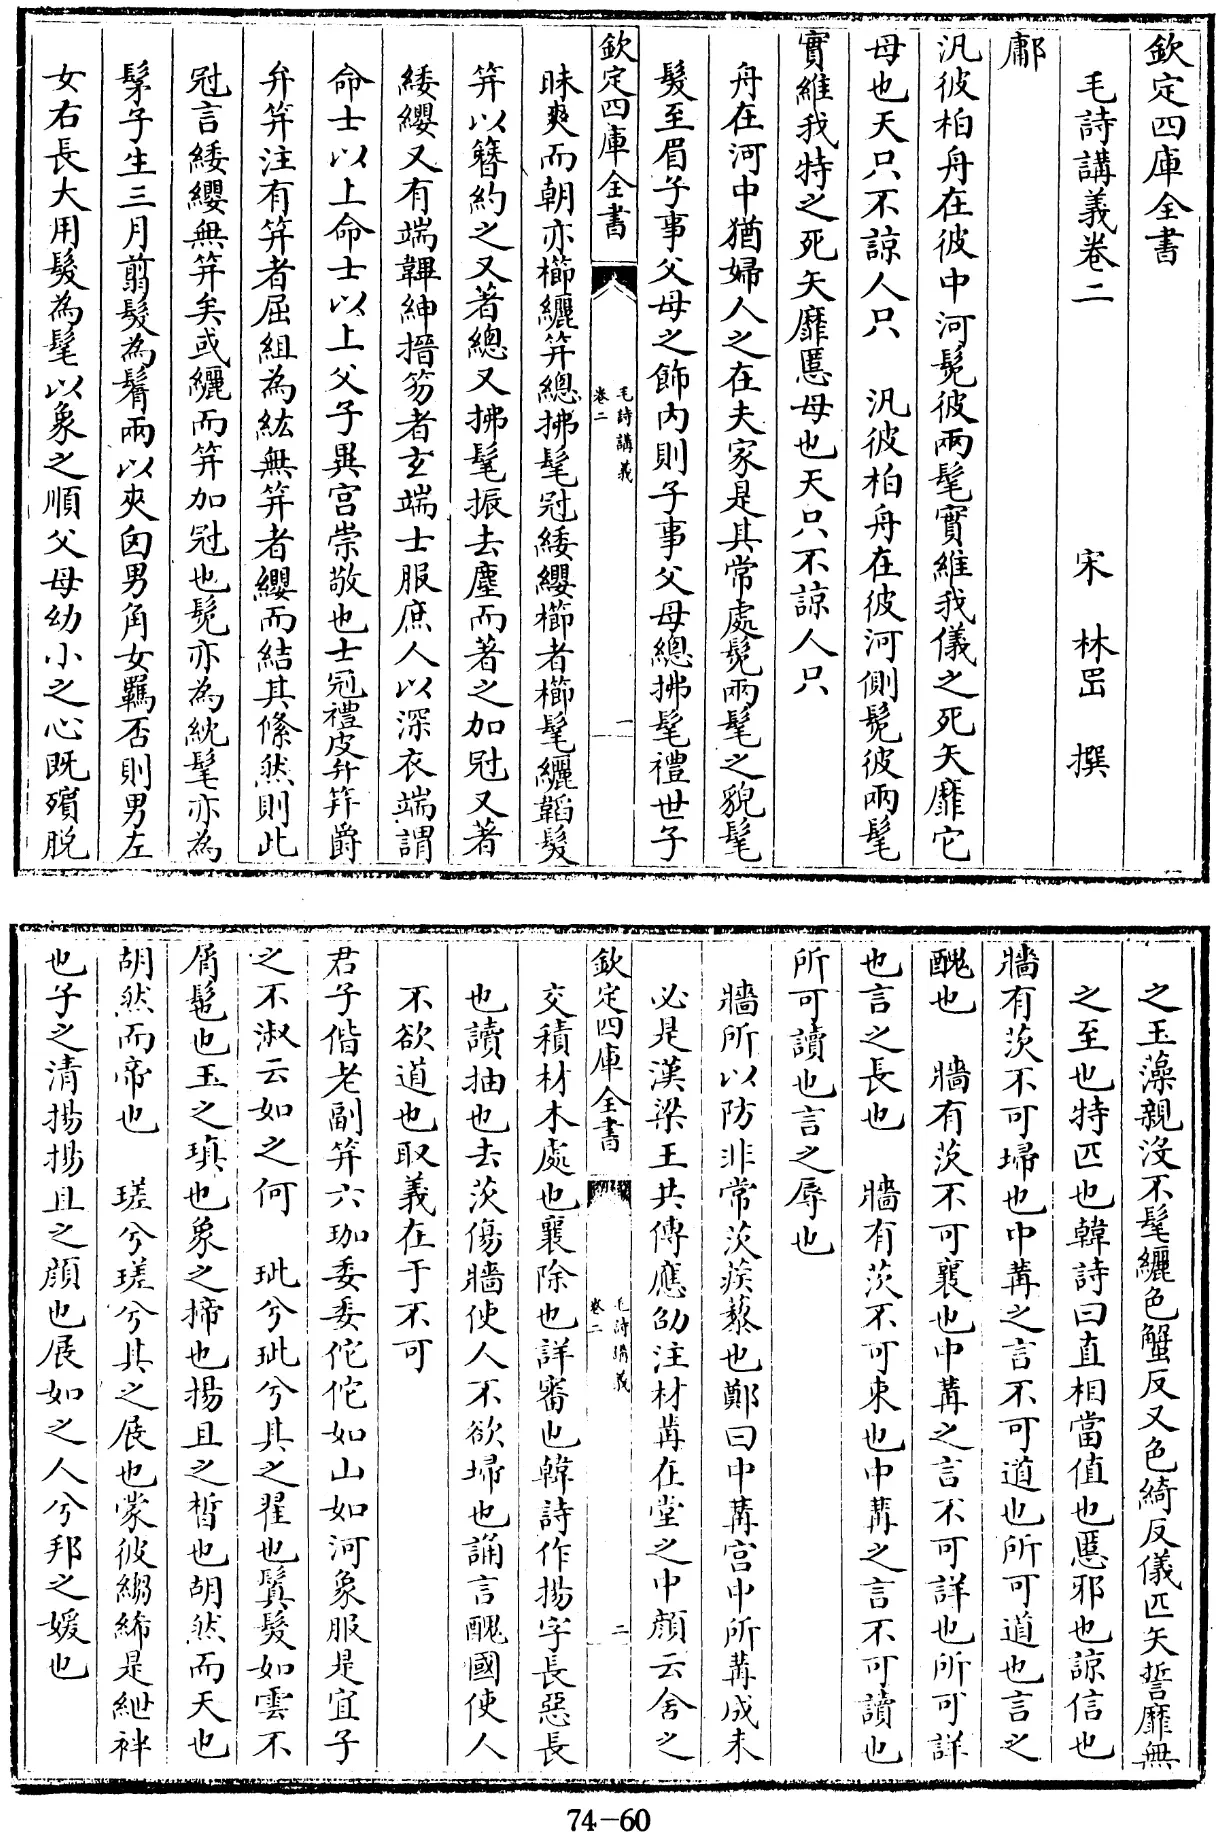 欽定四庫全書
毛詩講義卷二
宋 林岊 撰
鄘
汎彼柏舟在彼中河髧彼兩髦實維我儀之死矢靡它
母也天只不諒人只 汎彼柏舟在彼河側髧彼兩髦
實維我特之死矢靡慝母也天只不諒人只
舟在河中猶婦人之在夫家是其常處髧兩髦之貌髦
髮至眉子事父母之飾内則子事父母總拂髦禮世子
欽定四庫全書
毛詩講義
卷二
一
昧爽而朝亦櫛纚笄總拂髦冠緌纓櫛者櫛髦纚韜髮
笄以簪約之又著總又拂髦振去塵而著之加冠又著
緌纓又有端韠紳搢笏者玄端士服庶人以深衣端謂
命士以上命士以上父子異宫崇敬也士冠禮皮弁笄爵
弁笄注有笄者屈組為紘無笄者纓而結其絛然則此
冠言緌纓無笄矣或纚而笄加冠也髧亦為紞髦亦為
髳子生三月翦髮為鬌兩以夾囟男角女羈否則男左
女右長大用髮為髦以象之順父母幼小之心既殯脱
之玉藻親沒不髦纚色蟹反又色綺反儀匹矢誓靡無
之至也特匹也韓詩曰直相當值也慝邪也諒信也
牆有茨不可埽也中冓之言不可道也所可道也言之
醜也 牆有茨不可襄也中冓之言不可詳也所可詳
也言之長也 牆有茨不可束也中冓之言不可讀也
所可讀也言之辱也
牆所以防非常茨蒺藜也鄭曰中冓宫中所冓成未
必是漢梁王共傳應劭注材冓在堂之中顔云舍之
欽定四庫全書
毛詩講義
卷二
二
交積材木處也襄除也詳審也韓詩作揚字長惡長
也讀抽也去茨傷牆使人不欲埽也誦言醜國使人
不欲道也取義在于不可
君子偕老副笄六珈委委佗佗如山如河象服是宜子
之不淑云如之何 玼兮玼兮其之翟也鬒髮如雲不
屑髢也玉之瑱也象之揥也揚且之晳也胡然而天也
胡然而帝也 瑳兮瑳兮其之展也蒙彼縐絺是紲袢
也子之清揚揚且之顔也展如之人兮邦之媛也
74-60